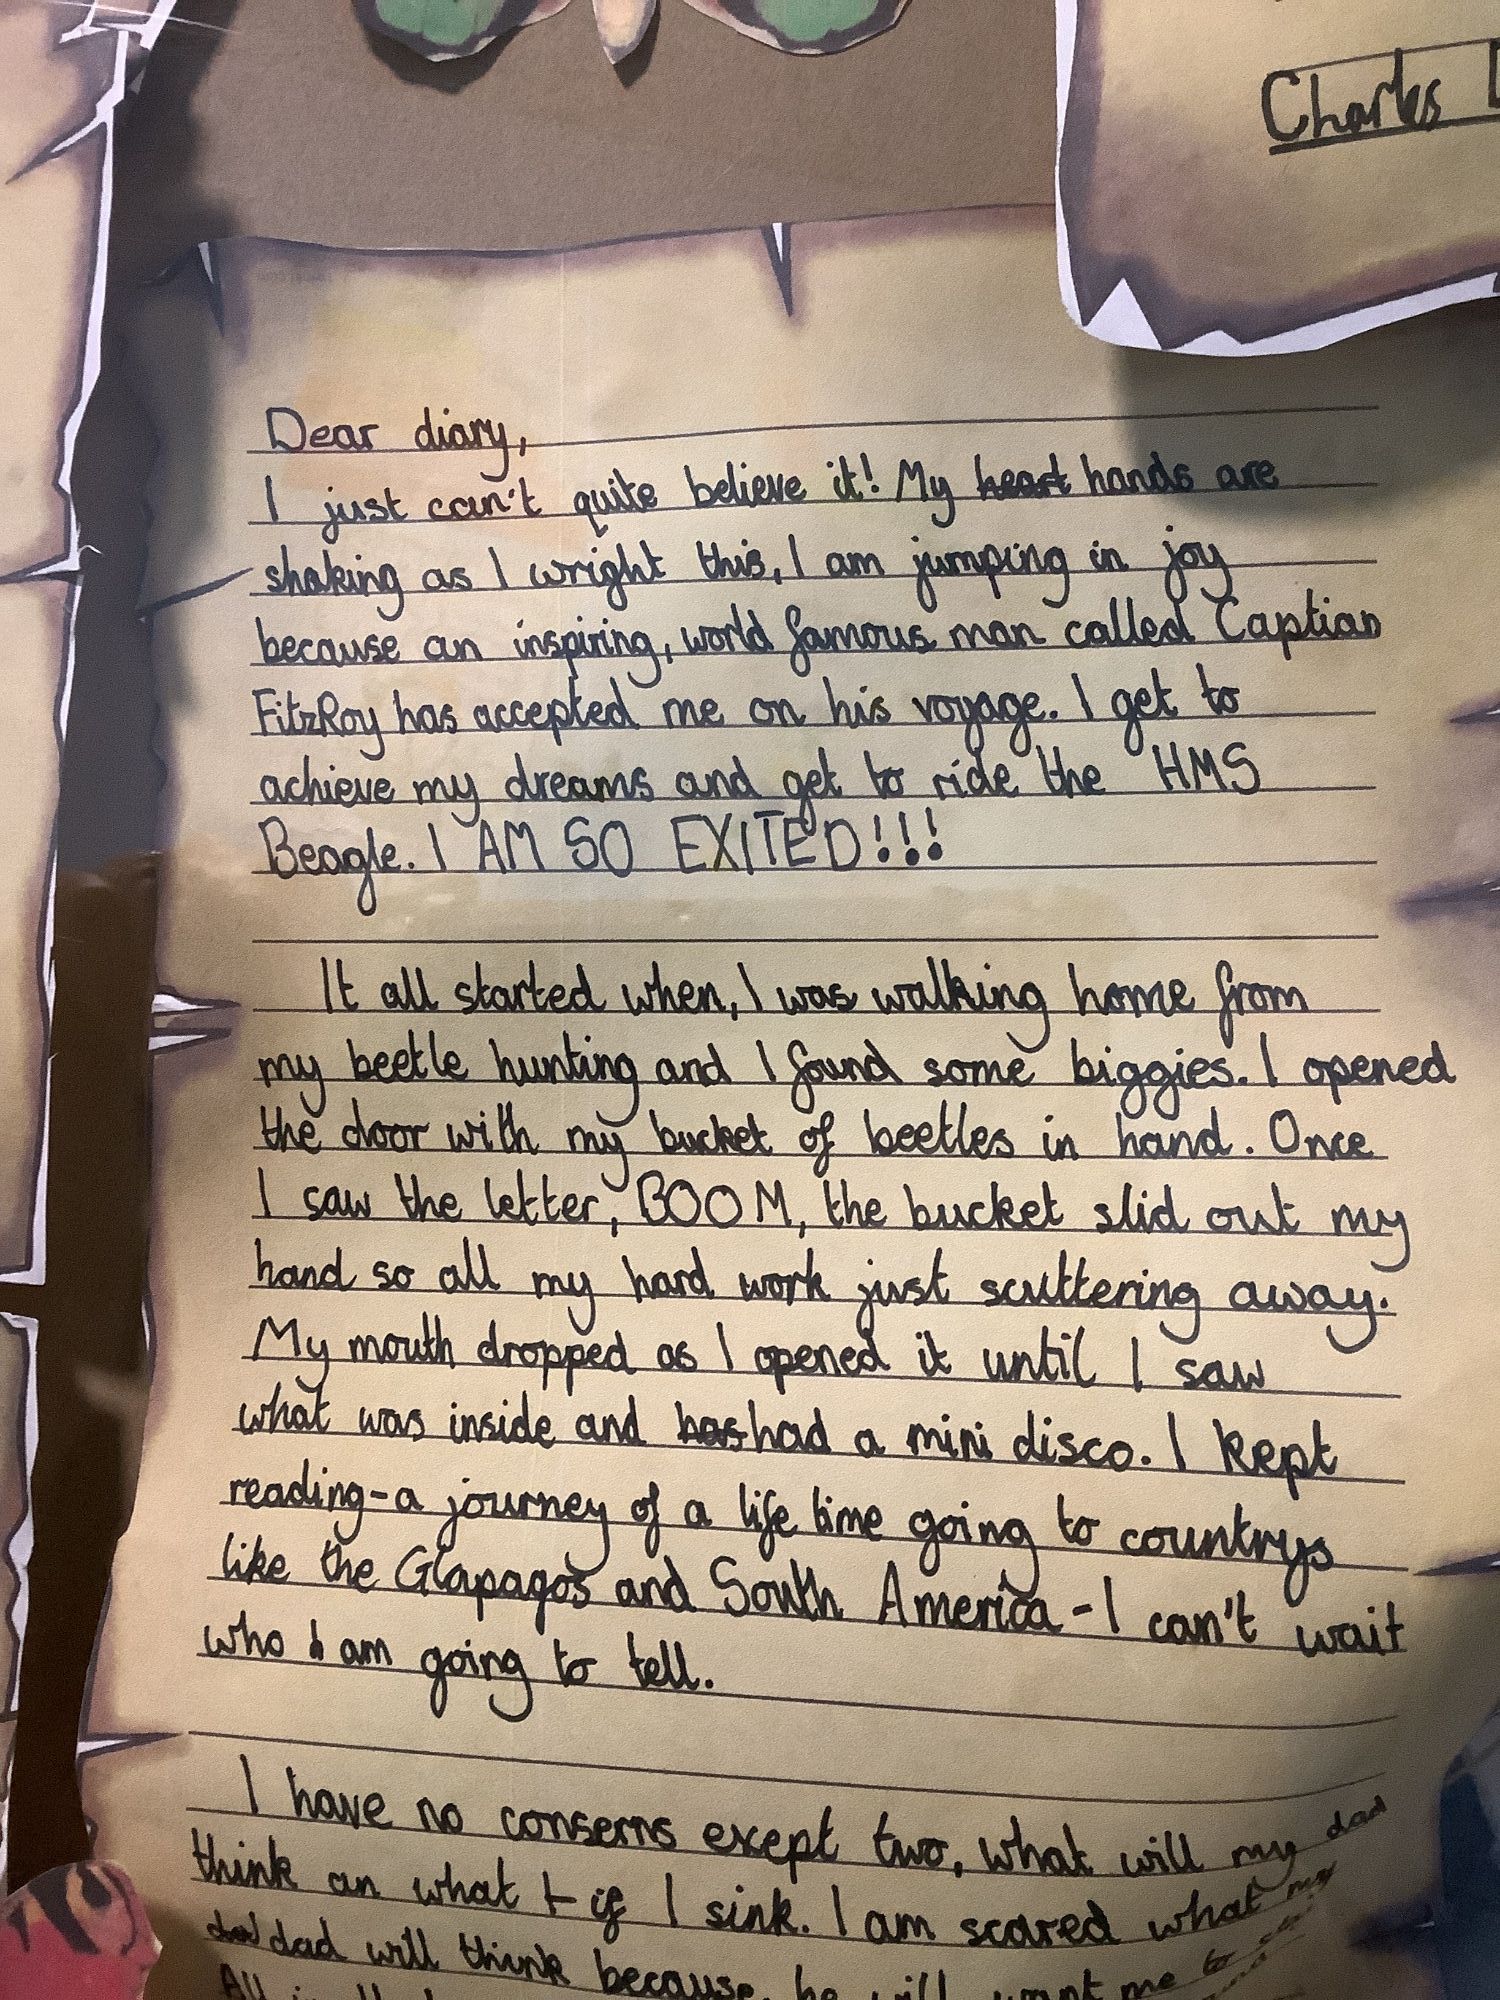 Charles
Dear diary,
I just can't quite believe it! My heart hands are
shaking as I wright this, I am jumping in joy
because an inspiring, world famous man called Captian
FitzRoy has accepted me on his voyage. I get to
achieve my dreams and get to ride the HMS
Beagle. I AM SO EXITED!!!
It all started when, I was walking home from
my beetle hunting and I found some biggies. I opened
the door with my bucket of beetles in hand. Once
I saw the letter, BOOM, the bucket slid out my
hand so all my hard work just scuttering away.
My mouth dropped as I opened it until I saw
what was inside and has had a mini disco. I kept
reading-a journey of a life time going to countrys
like the Glapagos and South America - I can't wait
who I am going to tell.
I have no conserns except two, what will my dad
think an what if I sink. I am scared what my
dad will think because he will want me to